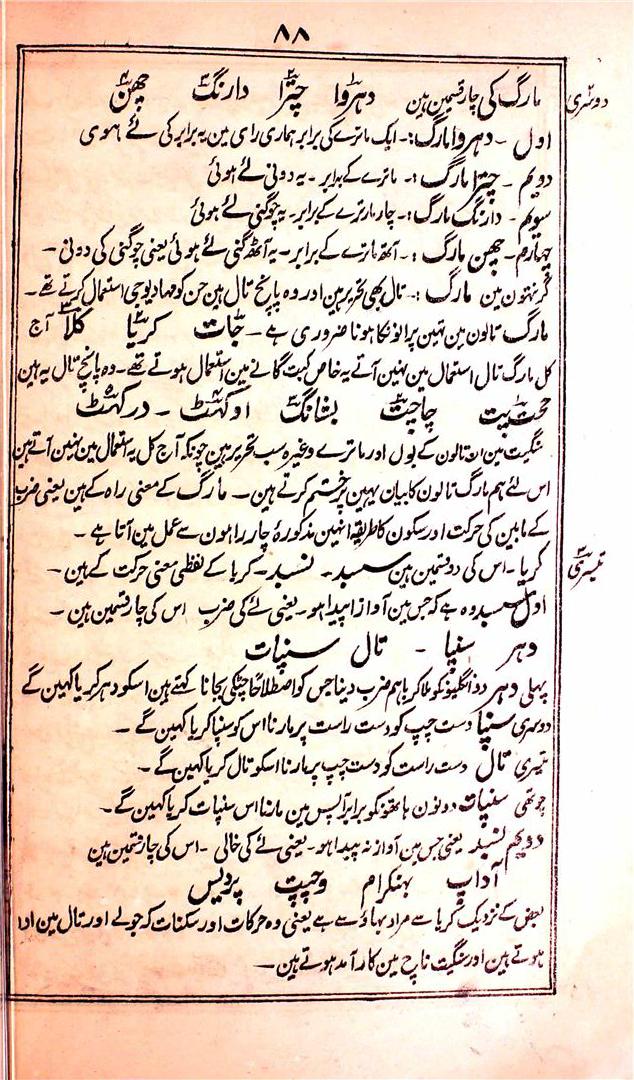 ۸۸
دوسری مارگ کی چار قسمین ہین دہروا چترا دارنگ چھن
اول - دہروا مارگ :- ایک ماترے کی برابر ہماری رای مین یہ برابر کی لئے ہوی
دویم - چترا مارگ :- ماترے کے برابر - یہ دونی لئے ہوئی
سویم - دارنگ مارگ :- چار ماترے کے برابر - یہ چوگنی لئے ہوئی
چہارم - چھن مارگ :- آٹھ ماترے کے برابر - یہ آٹھ گنی لئے ہوئی یعنی چوگنی کی دونی -
گرنتھون مین مارگ :- تال بھی تحریر ہین اور وہ پانچ تال ہین جن کو مہادیوجی استعمال کرتے تھے -
مارگ تالون مین تین پرانونکا ہونا ضروری ہے - جات کریا کلا آج
کل مارگ تال استعمال مین نہین آتے یہ خاص گیت گانے مین استعمال ہوتے تھے - وہ پانچ تال یہ ہین
چچت پت چاچپٹ بشانگ اوگہٹ - در گہٹ
سنگیت مین ان تالون کے بول اور ماترے وغیرہ سب تحریر ہین چونکہ آج کل یہ استعمال مین نہین آتے ہین
اس لئے ہم مارگ تالون کا بیان یہین پر ختم کرتے ہین - مارگ کے معنی راہ کے ہین یعنی ضرب
کے مابین کی حرکت اور سکون کا طریقہ انہین مذکورۂ چار راہون سے عمل مین آتا ہے -
تیسری کریا - اس کی دو قسمین ہین سسبد - نسبد - کریا کے لفظی معنی حرکت کے ہین -
اول سسبد وہ ہے کہ جس مین آواز پیدا ہو - یعنی لئے کی ضرب اس کی چار قسمین ہین -
دہر سنپا - تال سنپات
پہلی دہر دو انگلیونکو ملا کر باہم ضرب دینا جس کو اصطلاحاً چٹکی بجانا کہتے ہین اسکو دہر کریا کہین گے
دوسری سنپا دست چپ کو دست راست پر مارنا اس کو سنپا کریا کہین گے -
تیسری تال دست راست کو دست چپ پر مارنا اسکو تال کریا کہین گے -
چوتھی سنپات دونون ہاتھونکو برابر آپس مین مارنا اس سنپات کریا کہین گے -
دویم نسبد یعنی جس مین آواز نہ پیدا ہو - یعنی لئے کی خالی - اس کی چار قسمین ہین
آداپ بہنکرام وچھپت پردیس
بعض کے نزدیک کریا سے مراد بہاؤ سے ہے یعنی وہ حرکات اور سکنات کہ جو لے اور تال مین ادا
ہوتے ہین اور سنگیت ناچ مین کار آمد ہوتے ہین -